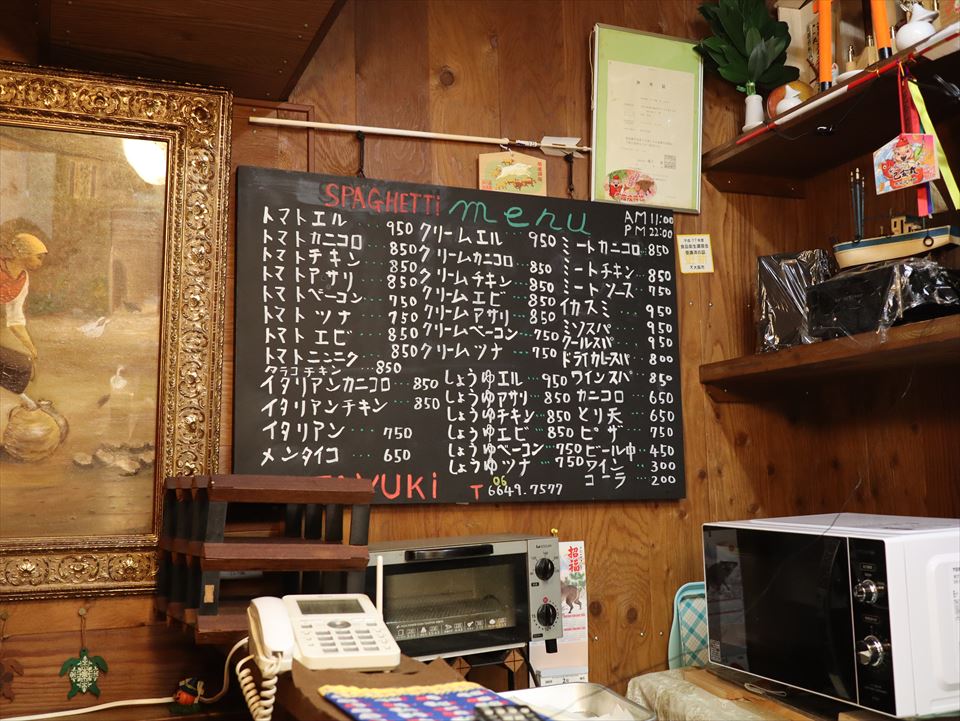 SPAGHETTi menu
AM 11:00
PM 22:00
トマトエル 950
トマトカニコロ 850
トマトチキン 850
トマトアサリ 850
トマトベーコン 750
トマトツナ 750
トマトエビ 850
トマトニンニク 850
タラコチキン 850
イタリアンカニコロ 850
イタリアンチキン 850
イタリアン 750
メンタイコ 650
クリームエル 950
クリームカニコロ
クリームチキン 850
クリームエビ 850
クリームアサリ 850
クリームベーコン 750
クリームツナ 750
しょうゆエル 950
しょうゆアサリ 850
しょうゆチキン 850
しょうゆエビ 850
しょうゆベーコン 750
しょうゆツナ 750
ミートカニコロ 850
ミートチキン 850
ミートソース 750
イカスミ 950
ミソスパ 950
クールスパ 950
ドライカレースパ 800
ワインスパ 850
カニコロ 650
とり天 650
ピザ 750
ビール中 450
ワイン 300
コーラ 200
YUKi T 06 6649.7577
招福